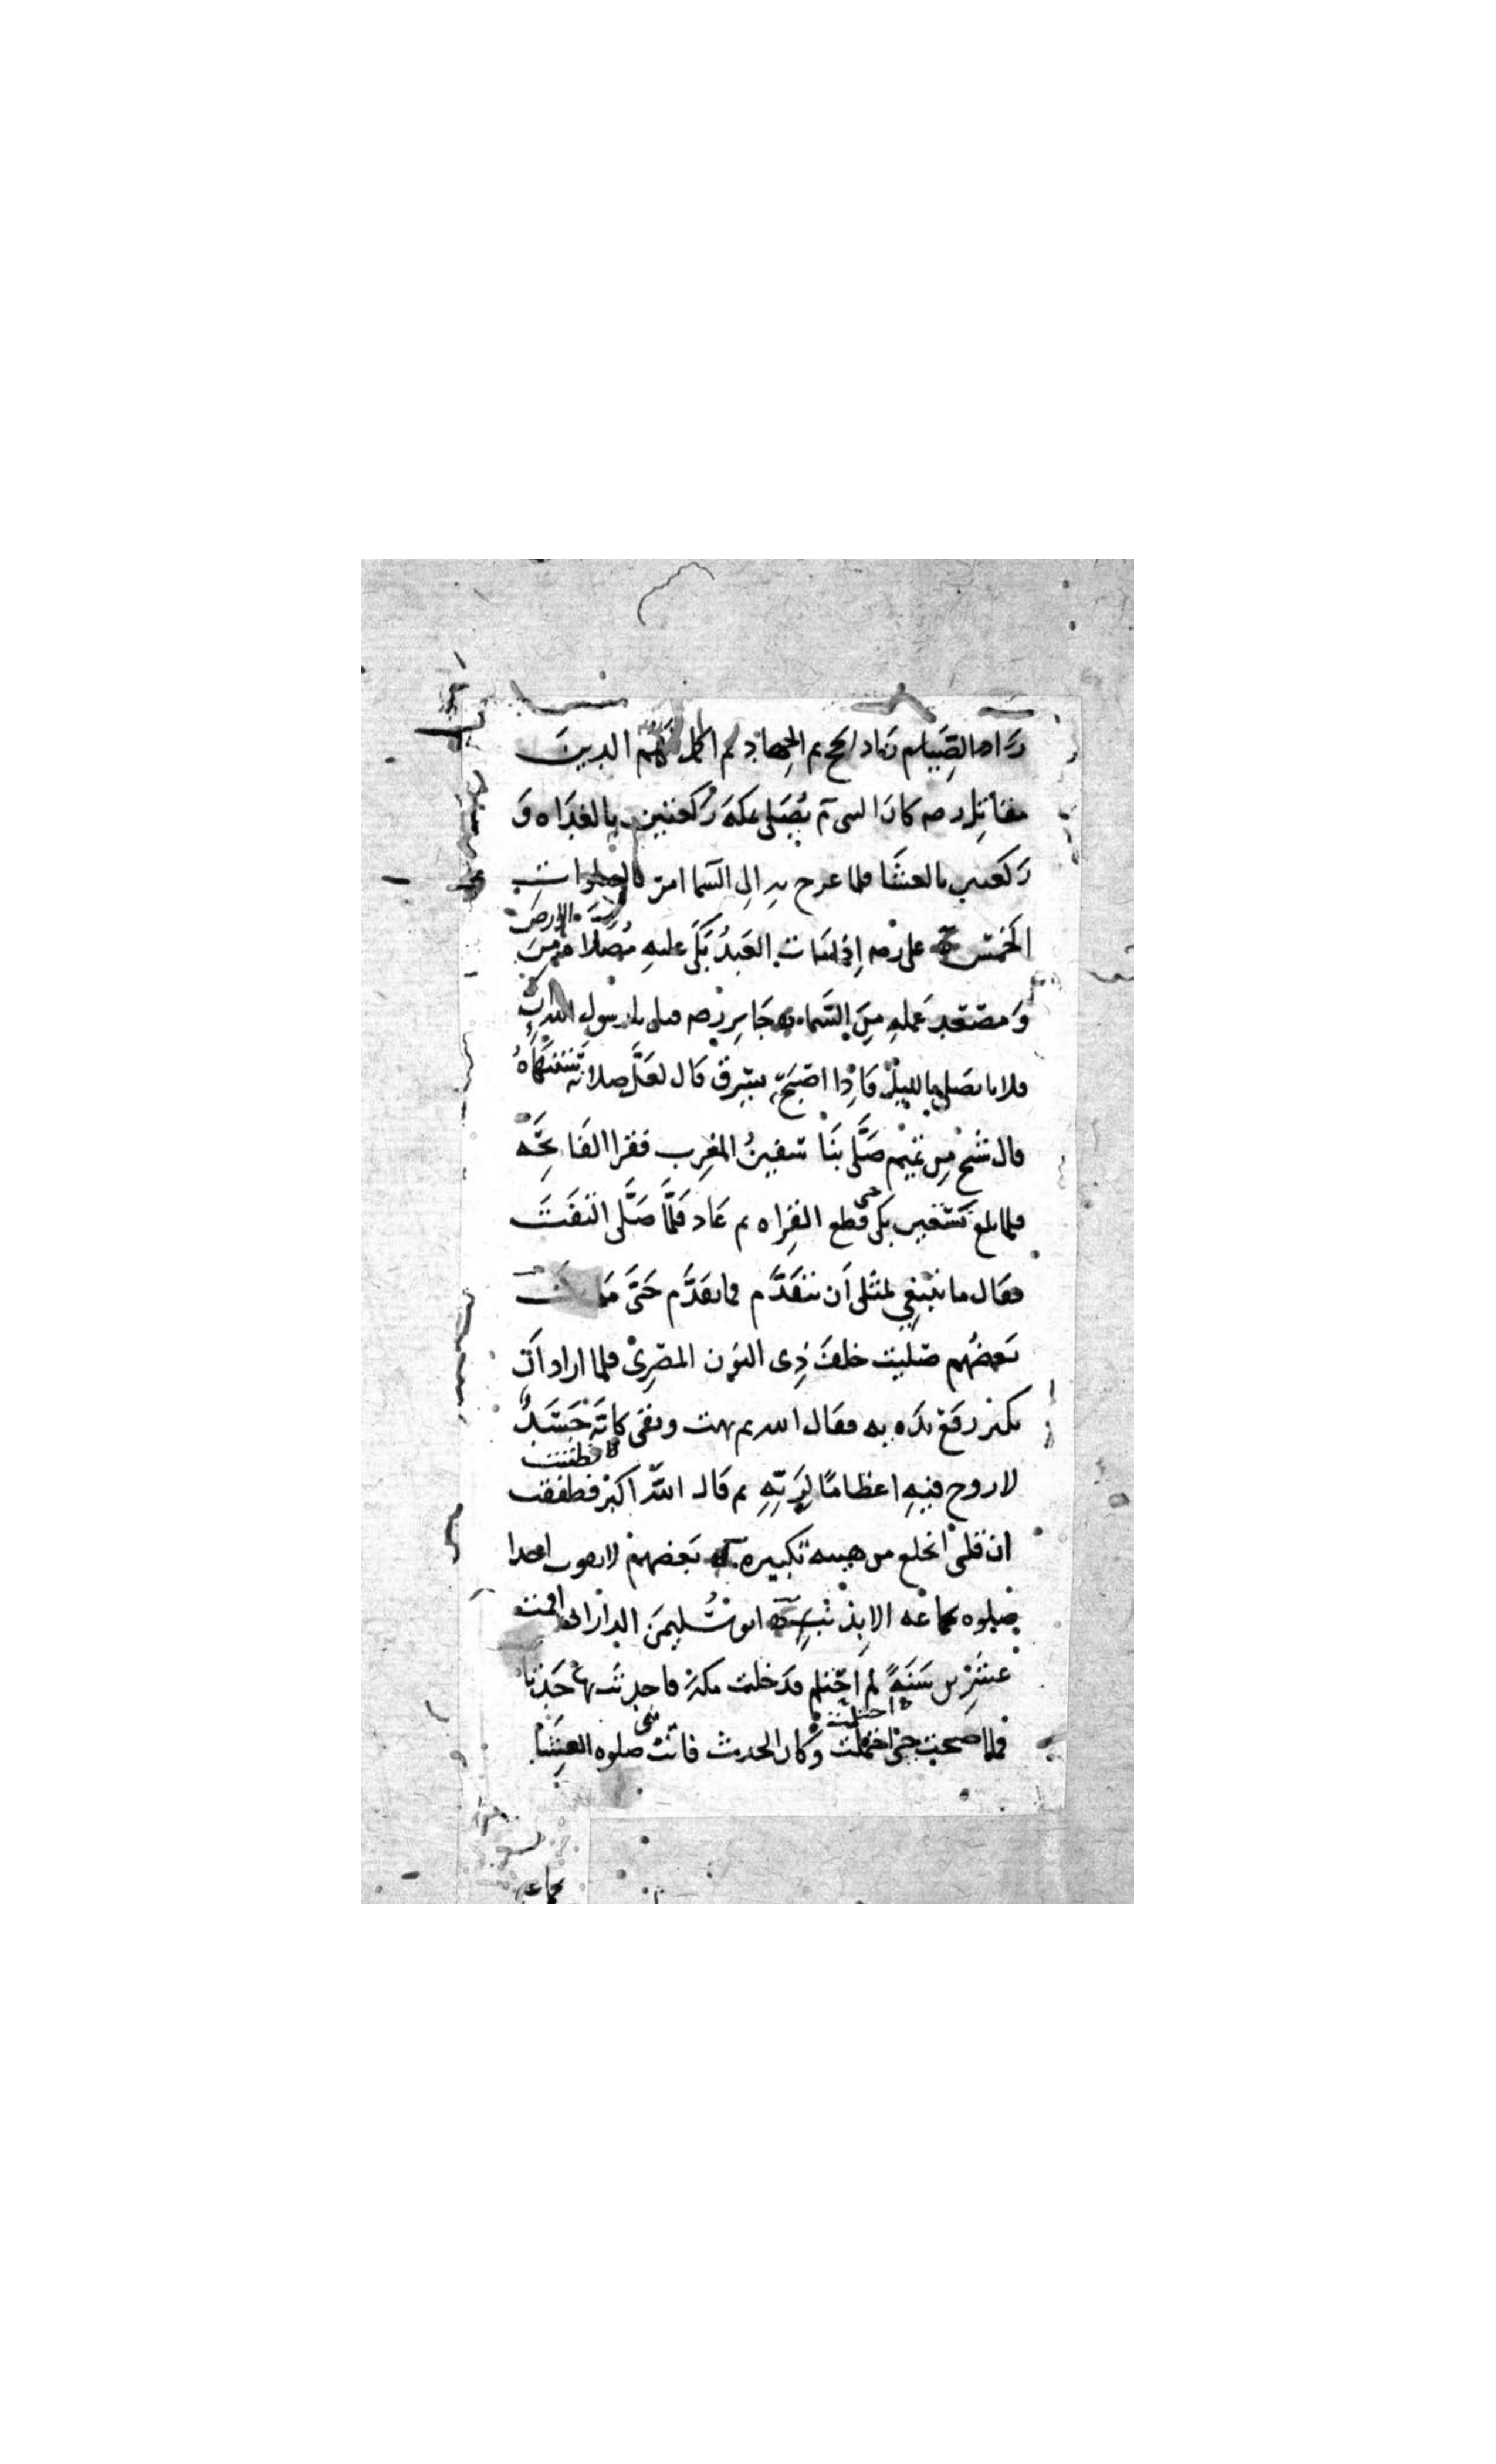 زادهم الصِّيام زادهم الحج ثم الجهاد ثم اكمل لهم الدين
مقاتل رضه كان النبي ﷺ يُصَلي بمكة ركعتين بالغداه وَ
ركعتين بالعشا فلما عرج به الى السما امر بالصلوات
الخمس علي رضه إذا مات العبدُ بكى عليه مُصَلاه من الارض
وَمصعد عمله مِنَ السَماء جابر رضه قيل يا رسول الله ان
فلانا يصلي بالليل فاذا اصبح سرق قال لعل صلاته تنهاهُ
قال شيخ من تميم صَلَّى بنا سفين المغرب فقرا الفاتحه
فلما بلغ نستعين بكى حتى قطع القراه ثم عاد فلَمَّا صَلَّى التفت
فقال ما ينبغي لمثلى أن يتقدَّم فما تقدَّم حَتَّى مات
بعضهم صليت خلف ذِى النون المصري فلما اراد ان
يكبر رفع يده به فقال الله ثم بهت وبقى كانَّه جَسَدٌ
لا روح فيه اعظامًا لربِّهِ ثم قال الله اكبر فظننت
ان قلبى انخلع من هيبه تكبيره بعضهم لا يفوت احدا
صلوه جماعه الا بذنب ابو سُليمن الدارانى اقمت
عشرين سَنَةً لم احتلم فدخلت مكة فاحدثت بها حدثا
فما اصبحت حتى احتلمت وكان الحدث فاتتنى صلوه العِشَا
جماعه